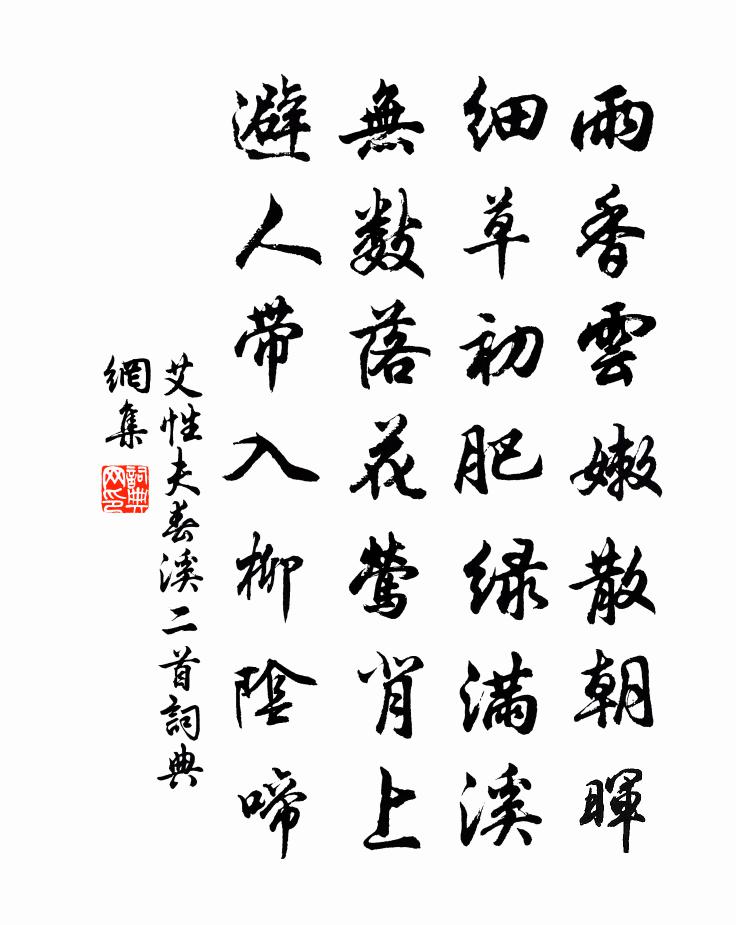 雨香雲嫩散朝暉
細草初肥緑滿溪
無數落花鶯背上
避人帶入柳陰啼
艾性夫春溪二首詞典
網集
詞典網印